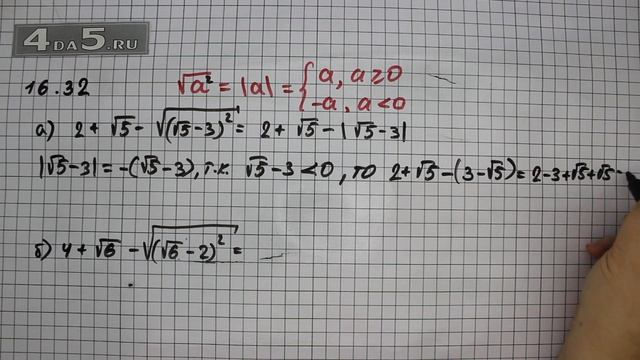 4DA5.RU
16.32
√a² = |a| = { a, a ≥ 0
-a, a < 0
а) 2 + √5 - √(√5 - 3)² = 2 + √5 - |√5 - 3|
|√5 - 3| = -(√5 - 3), т.к. √5 - 3 < 0, то 2 + √5 - (3 - √5) = 2 - 3 + √5 + √5 =
б) 4 + √6 - √(√6 - 2)² =